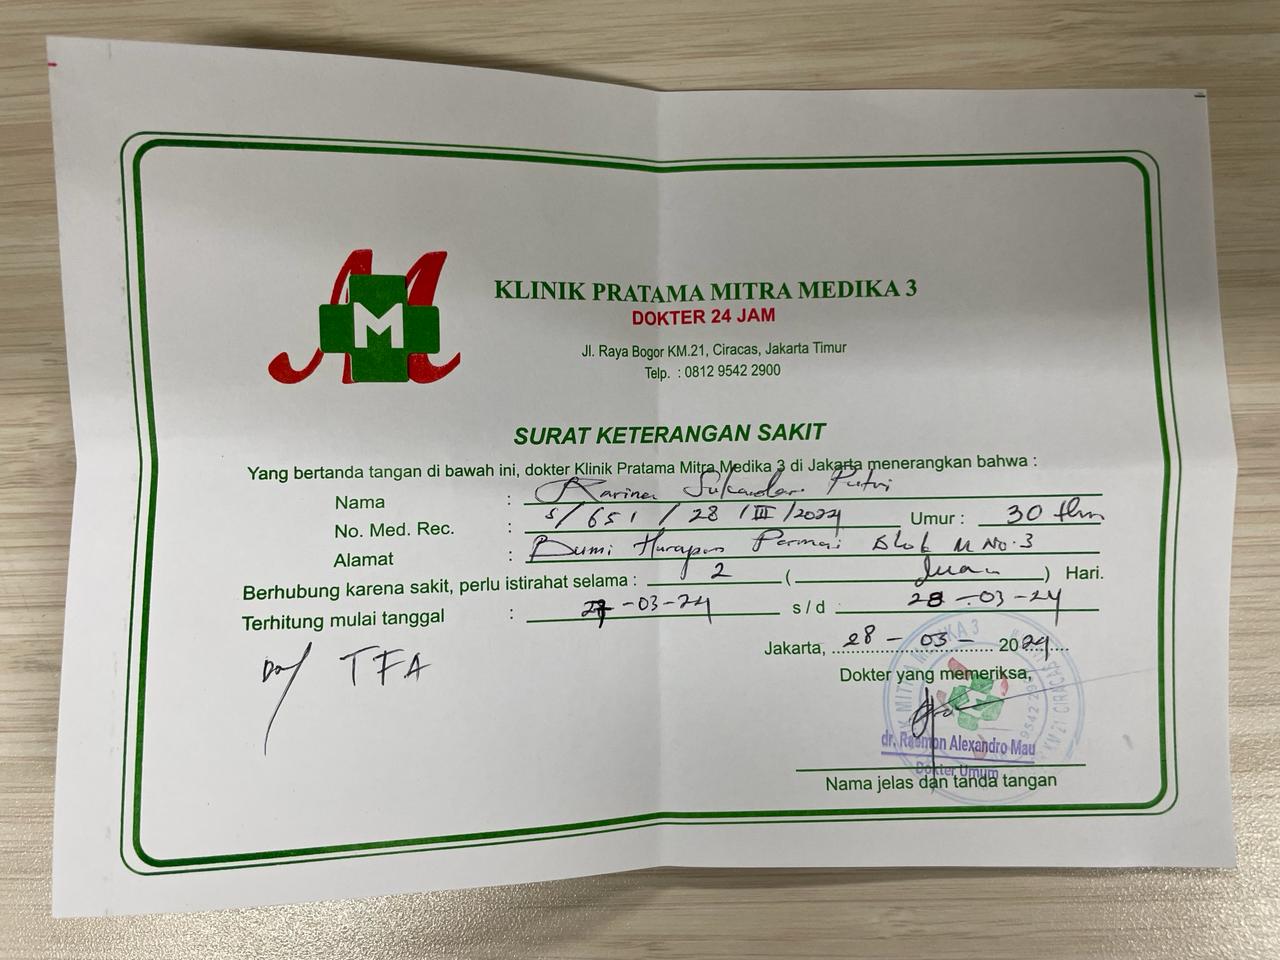 M
KLINIK PRATAMA MITRA MEDIKA 3
DOKTER 24 JAM
Jl. Raya Bogor KM.21, Ciracas, Jakarta Timur
Telp. : 0812 9542 2900
SURAT KETERANGAN SAKIT
Yang bertanda tangan di bawah ini, dokter Klinik Pratama Mitra Medika 3 di Jakarta menerangkan bahwa :
Nama : Karina Sukandar Putri
No. Med. Rec. : S/651/28/III/2024 Umur : 30 thn
Alamat : Bumi Harapan Permai Blok M No.3
Berhubung karena sakit, perlu istirahat selama : 2 ( ) Hari.
Terhitung mulai tanggal : 27-03-24 s/d : 28-03-24
Jakarta, 28-03-2024
Dokter yang memeriksa,
TFA
dr. Raemon Alexandro Mau
Dokter Umum
Nama jelas dan tanda tangan